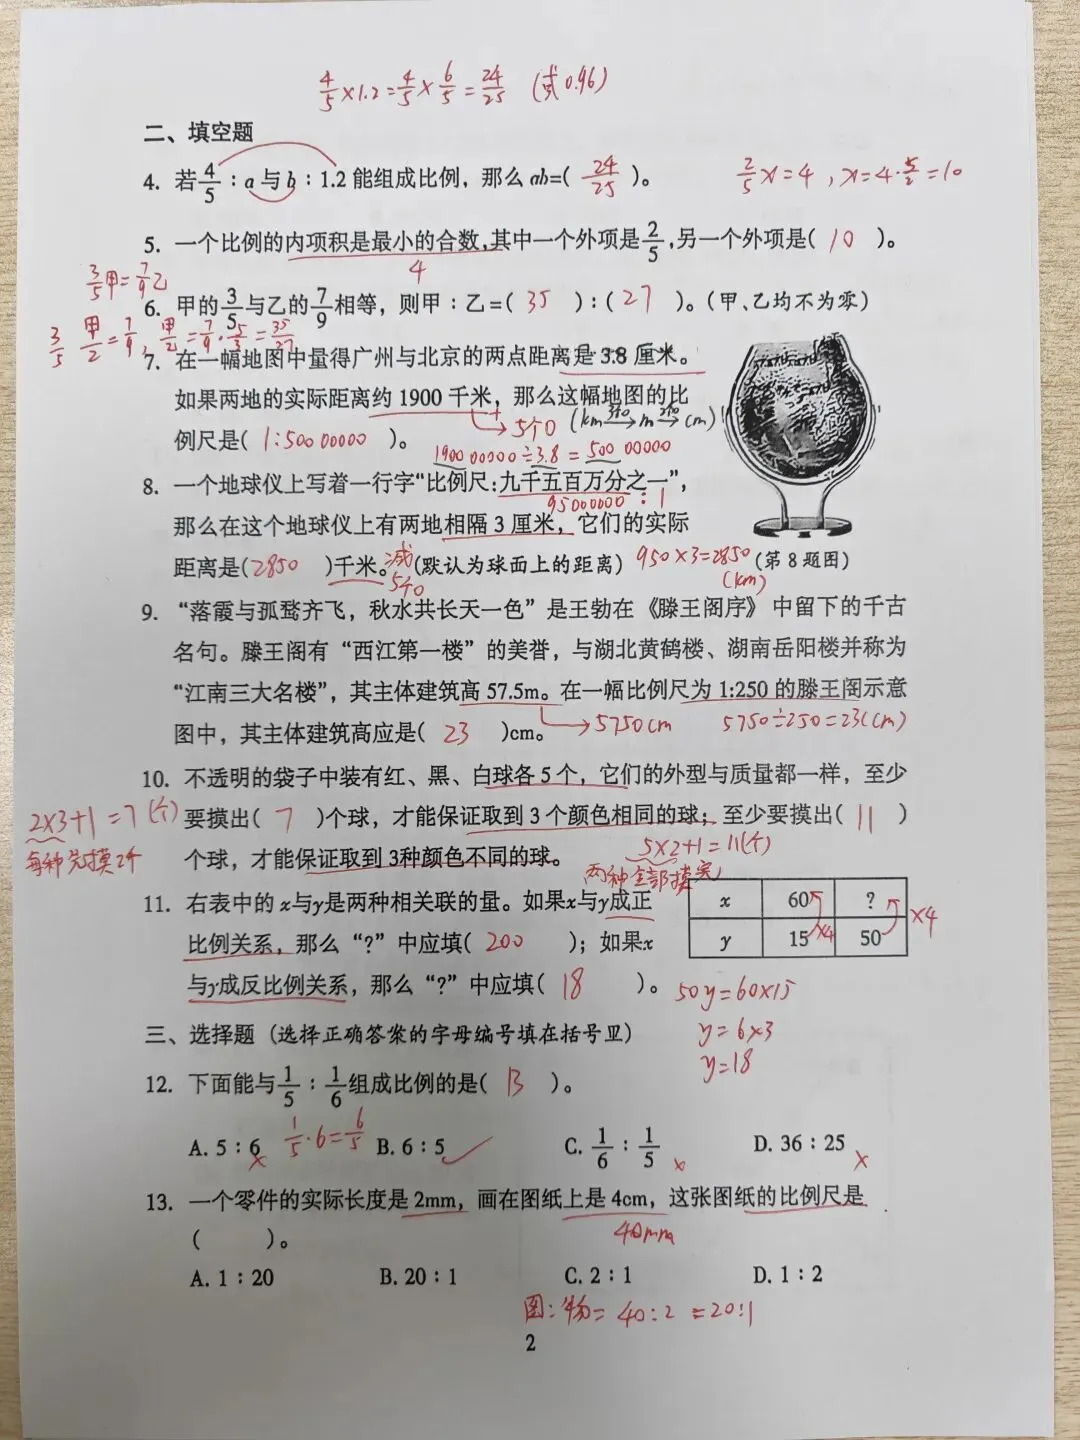 4/5×1.2=4/5×6/5=24/25 (或0.96)
二、填空题
4. 若4/5：a与b：1.2能组成比例，那么ab=( 24/25 )。
2/5x=4，x=4·5/2=10
5. 一个比例的内项积是最小的合数,其中一个外项是2/5,另一个外项是( 10 )。
4
3/5甲=7/9乙
6. 甲的3/5与乙的7/9相等，则甲：乙=( 35 )：( 27 )。(甲、乙均不为零)
3/5 甲/乙=7/9，甲/乙=7/9·5/3=35/27
7. 在一幅地图中量得广州与北京的两点距离是3.8厘米。
如果两地的实际距离约1900千米，那么这幅地图的比
+5个0 (km→m→cm)
例尺是( 1:50000000 )。
190000000÷3.8=50000000
8. 一个地球仪上写着一行字“比例尺:九千五百万分之一”，
95000000：1
那么在这个地球仪上有两地相隔3厘米，它们的实际
距离是(2850 )千米。(默认为球面上的距离)
减5个0
950×3=2850(km)
(第8题图)
9. “落霞与孤鹜齐飞，秋水共长天一色”是王勃在《滕王阁序》中留下的千古
名句。滕王阁有“西江第一楼”的美誉，与湖北黄鹤楼、湖南岳阳楼并称为
“江南三大名楼”，其主体建筑高57.5m。在一幅比例尺为1:250的滕王阁示意
→5750cm 5750÷250=23(cm)
图中，其主体建筑高应是( 23 )cm。
10. 不透明的袋子中装有红、黑、白球各5个，它们的外型与质量都一样，至少
2×3+1=7(个)
要摸出( 7 )个球，才能保证取到3个颜色相同的球；至少要摸出( 11 )
每种先摸2个
5×2+1=11(个)
个球，才能保证取到3种颜色不同的球。
两种全部摸完
11. 右表中的x与y是两种相关联的量。如果x与y成正
x 60 ?
比例关系，那么“?”中应填( 200 )；如果x
y 15 50
×4 ×4
与y成反比例关系，那么“?”中应填( 18 )。
50y=60×15
y=6×3
y=18
三、选择题(选择正确答案的字母编号填在括号里)
12. 下面能与1/5：1/6组成比例的是( B )。
1/5·6=6/5
A. 5：6 × B. 6：5 ✓ C. 1/6：1/5 × D. 36：25 ×
13. 一个零件的实际长度是2mm，画在图纸上是4cm，这张图纸的比例尺是
40mm
( )。
A. 1：20 B. 20：1 C. 2：1 D. 1：2
图：物=40：2=20:1
2